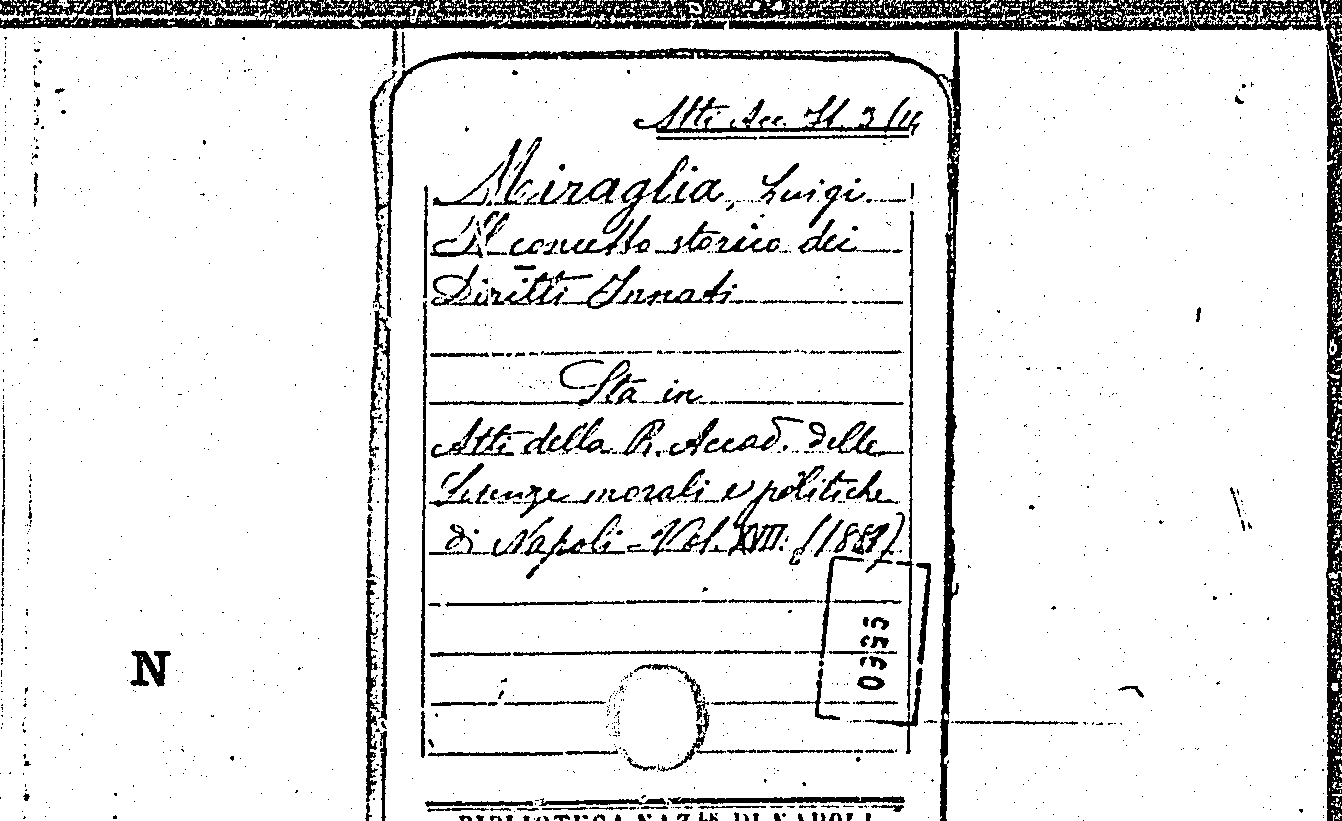 Atti Acc. It. 3/14
Miraglia, Luigi
Il concetto storico dei
Diritti Innati
Sta in
Atti della R. Accad. delle
Scienze morali e politiche
di Napoli - Vol. XVII. (1881)
0355
N
BIBLIOTECA NAZ.LE DI NAPOLI